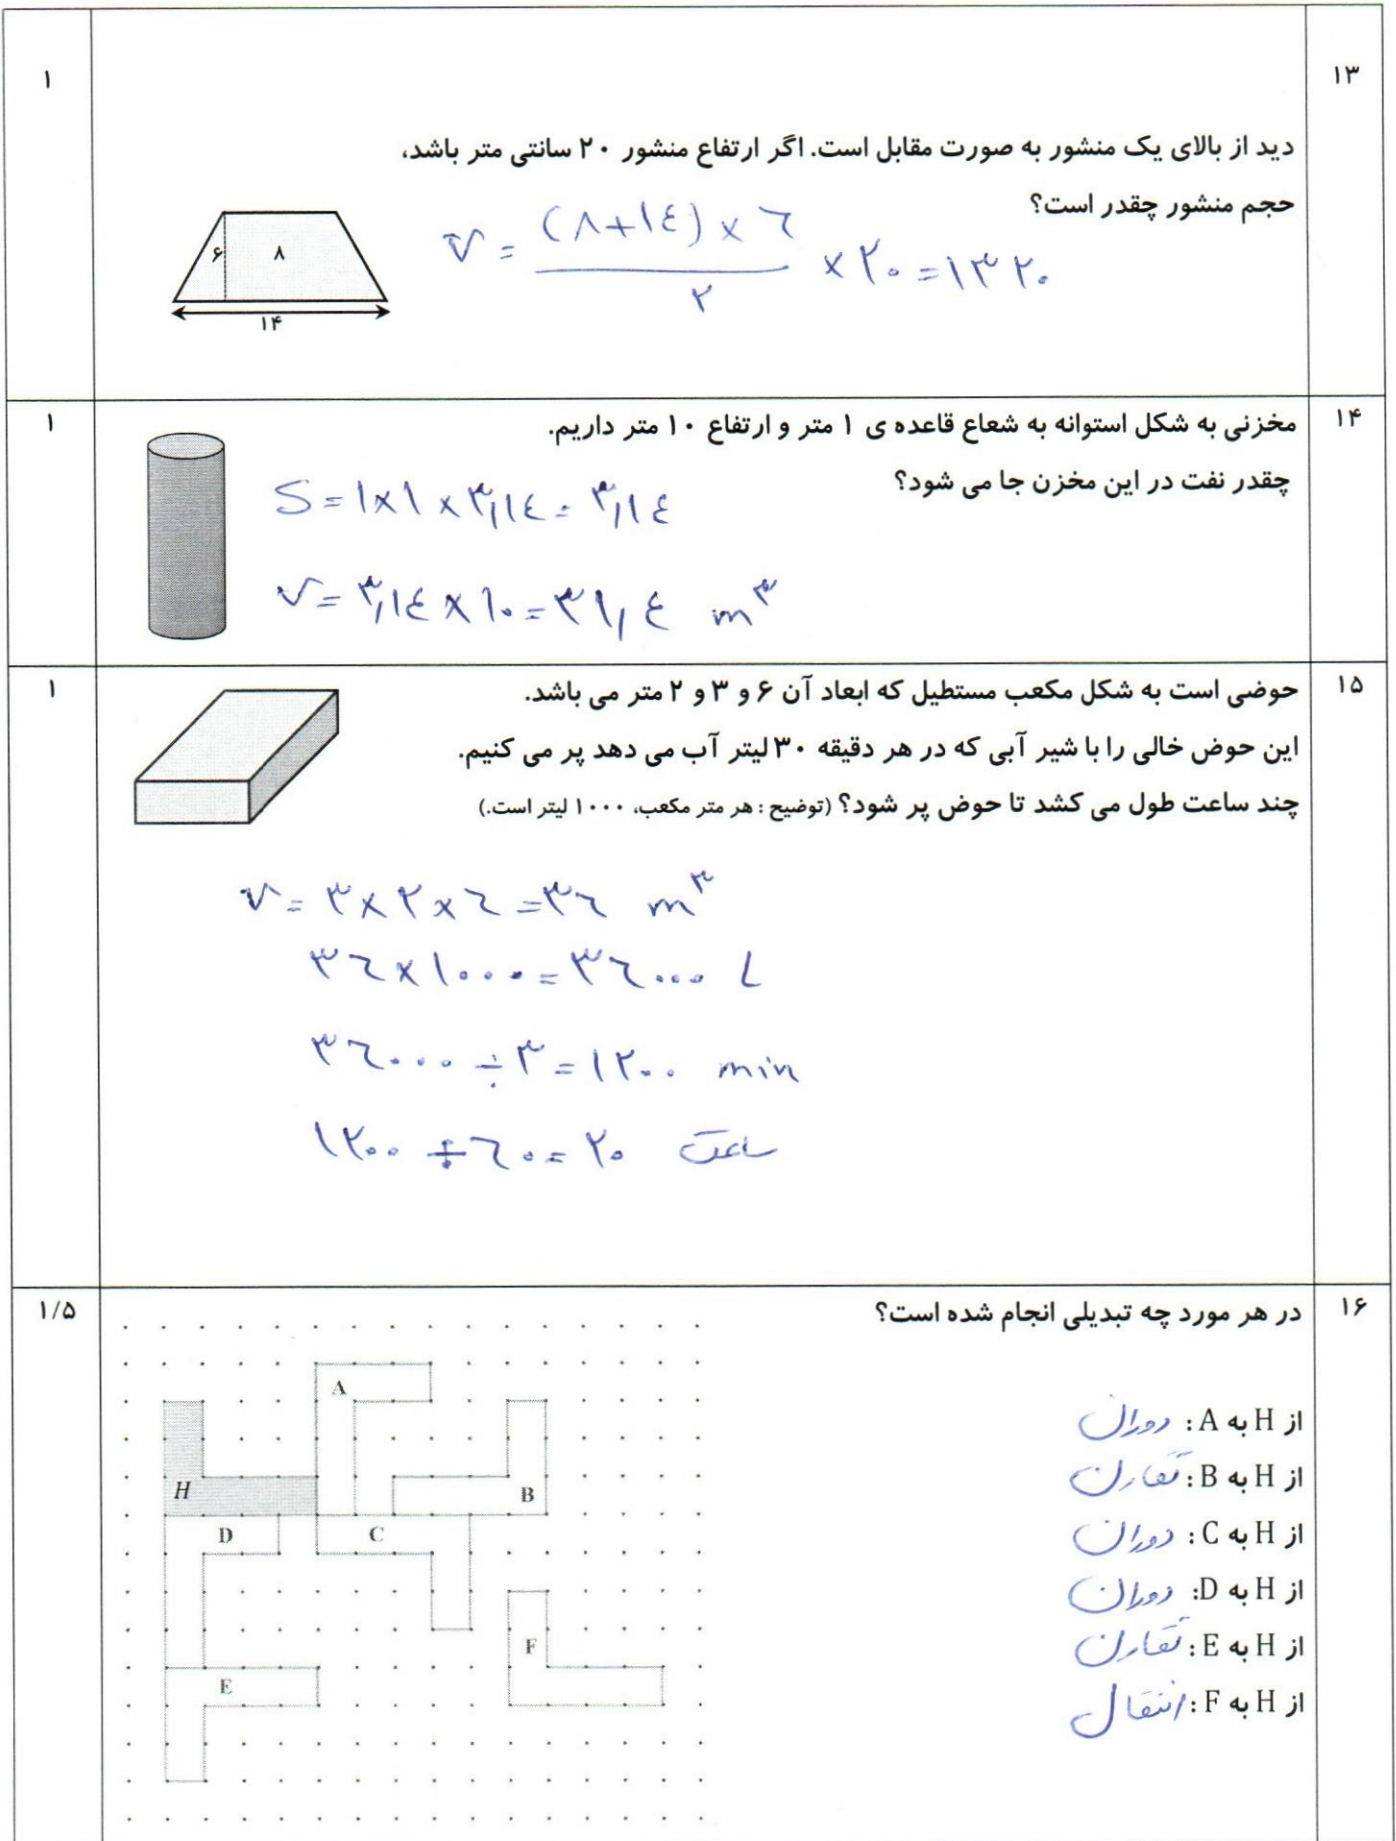 ۱۳
۱
دید از بالای یک منشور به صورت مقابل است. اگر ارتفاع منشور ۲۰ سانتی متر باشد،
حجم منشور چقدر است؟
۶
۸
۱۴
V = (۸+۱٤) × ٦ / ۲ × ۲۰ = ۱۳۲۰
۱۴
۱
مخزنی به شکل استوانه به شعاع قاعده ی ۱ متر و ارتفاع ۱۰ متر داریم.
چقدر نفت در این مخزن جا می شود؟
S = ۱×۱×۳,۱٤ = ۳,۱٤
V = ۳,۱٤ × ۱۰ = ۳۱,٤ m³
۱۵
۱
حوضی است به شکل مکعب مستطیل که ابعاد آن ۶ و ۳ و ۲ متر می باشد.
این حوض خالی را با شیر آبی که در هر دقیقه ۳۰ لیتر آب می دهد پر می کنیم.
چند ساعت طول می کشد تا حوض پر شود؟ (توضیح : هر متر مکعب، ۱۰۰۰ لیتر است.)
V = ۳×۲×٦ = ۳٦ m³
۳٦×۱۰۰۰ = ۳٦۰۰۰ L
۳٦۰۰۰ ÷ ۳ = ۱۲۰۰ min
۱۲۰۰ ÷ ٦۰ = ۲۰ ساعت
۱۶
۱/۵
در هر مورد چه تبدیلی انجام شده است؟
از H به A : دوران
از H به B : تقارن
از H به C : دوران
از H به D: دوران
از H به E : تقارن
از H به F : انتقال
A
H
B
D
C
F
E